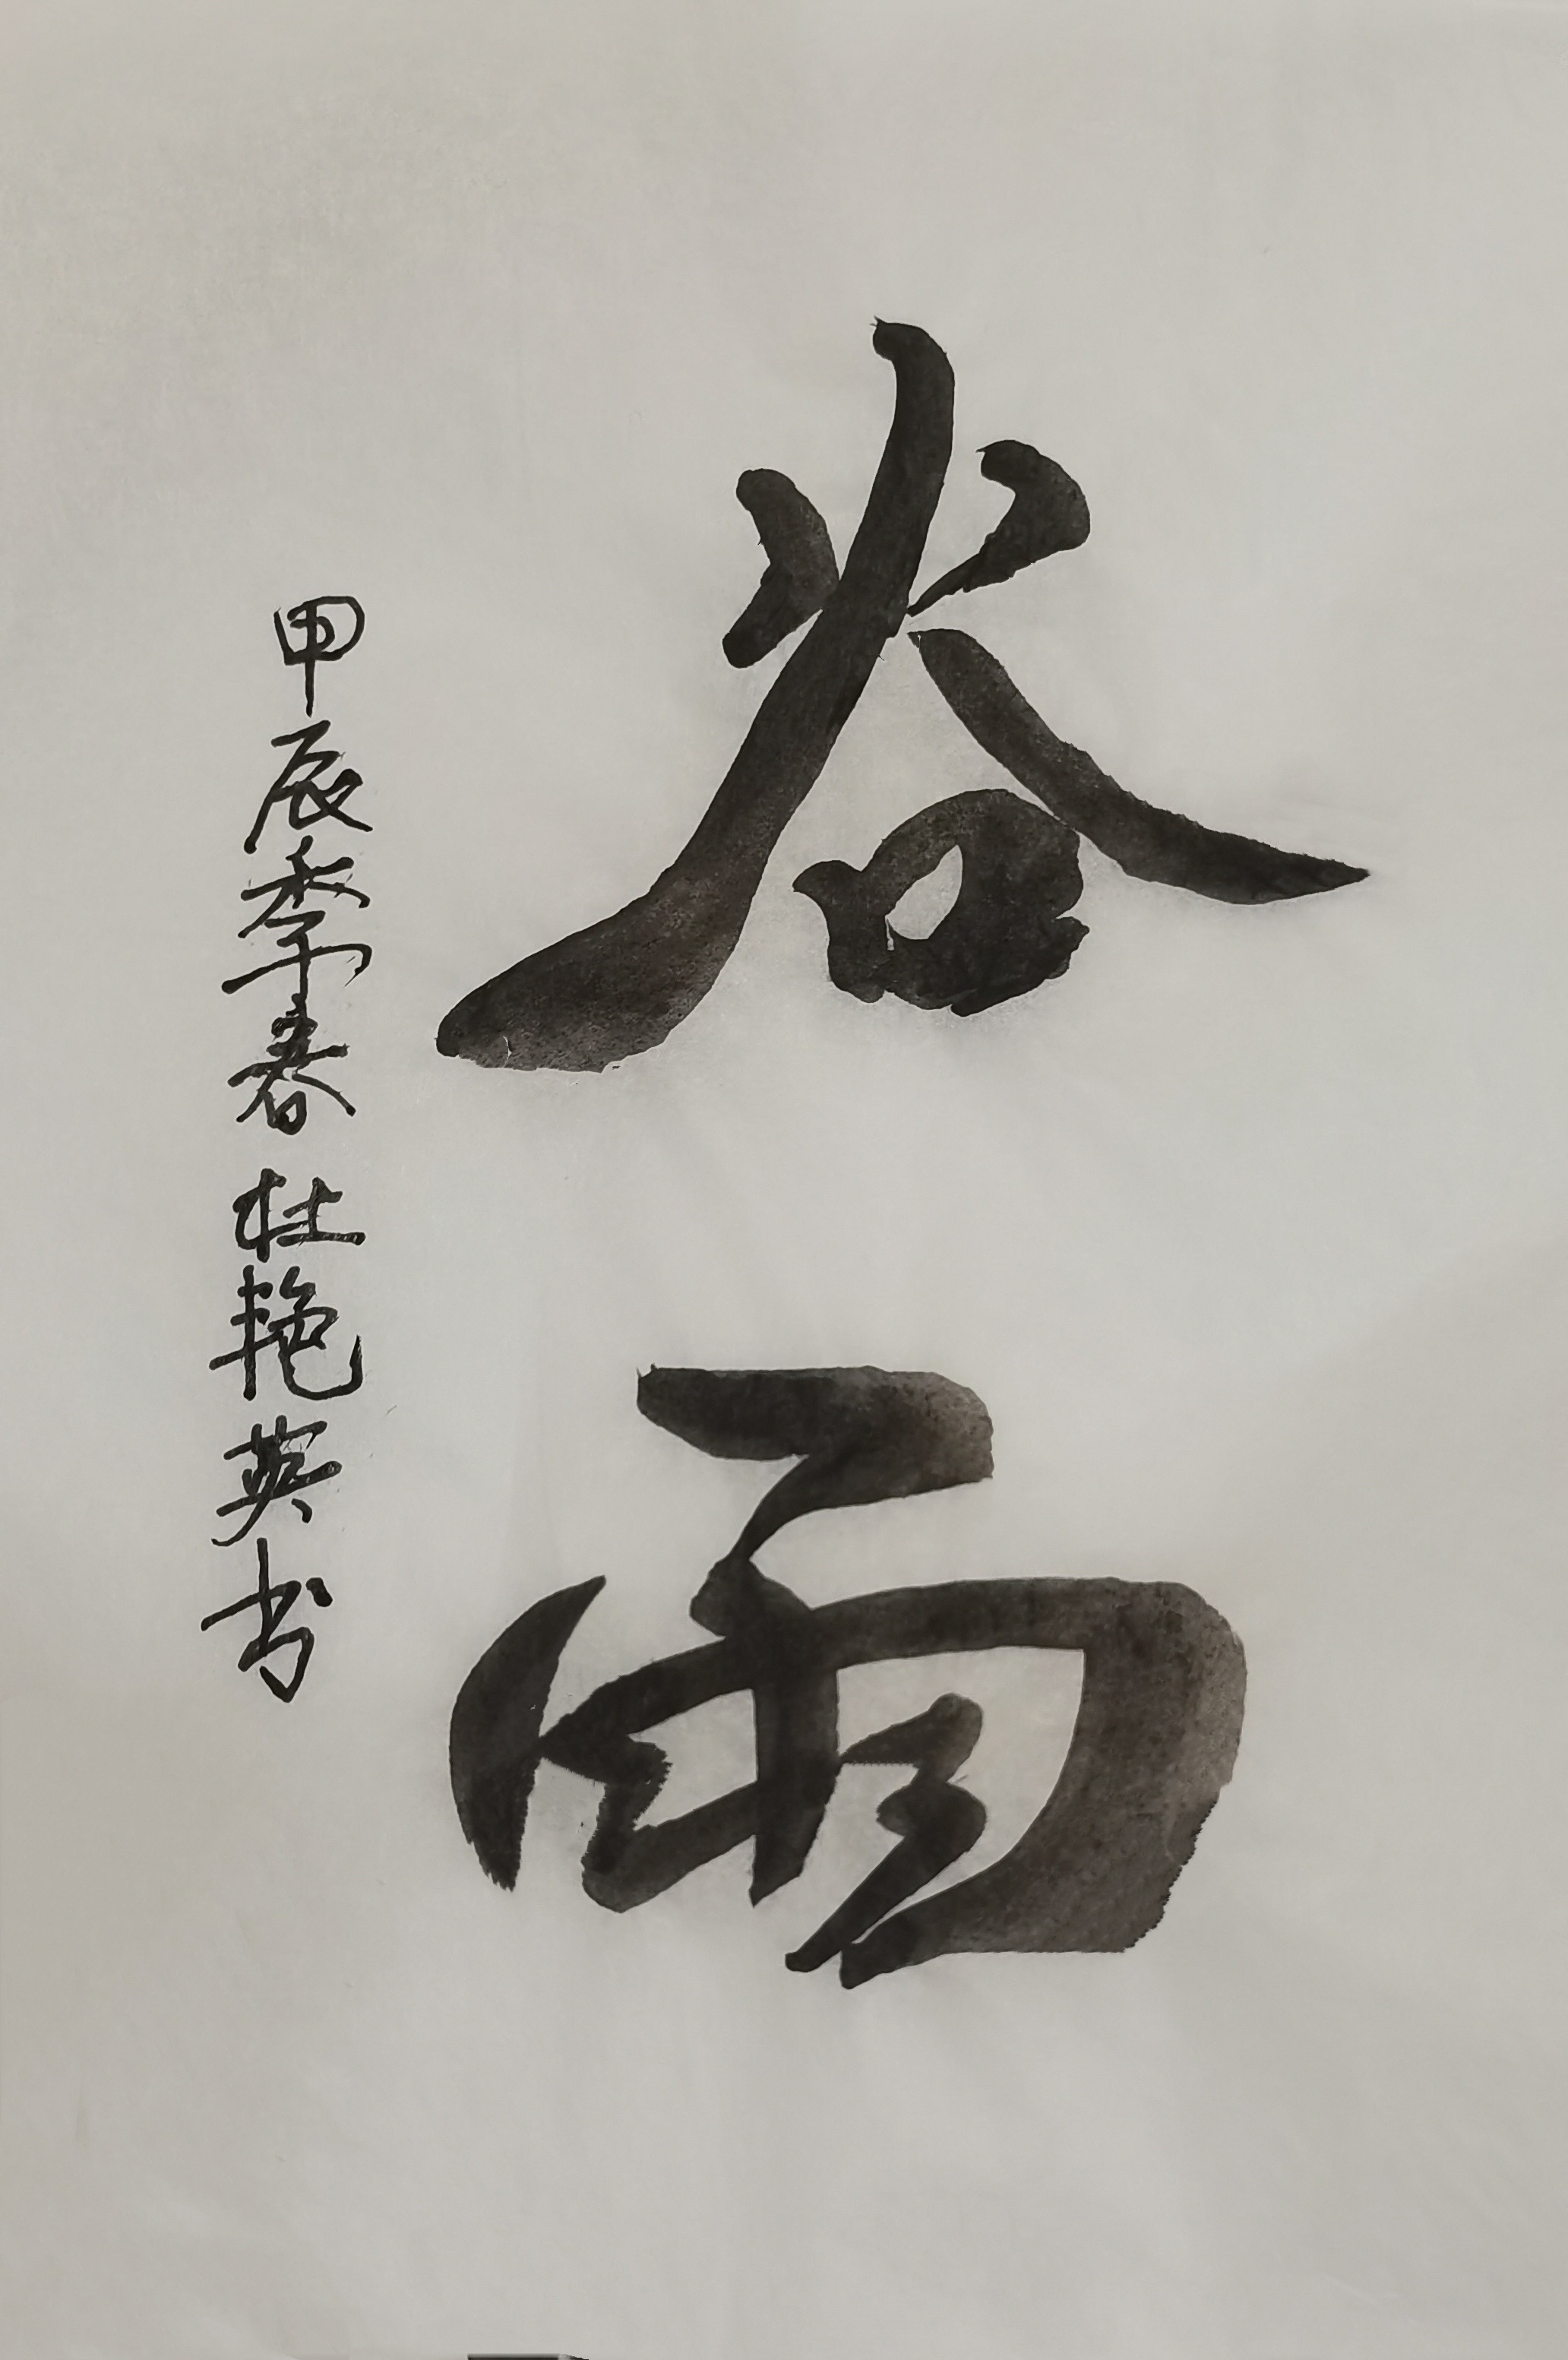 谷雨
甲辰季春 杜艳英书